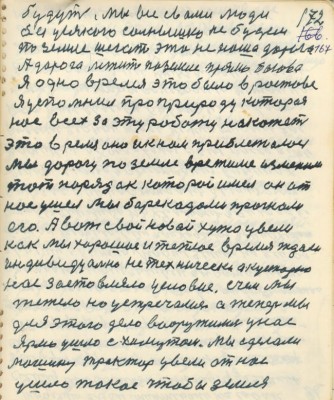 будут, мы все свои люди 172
Без усякого солнишко не будем 166
по земле шагать это не наша дорога 164
А дорога лежит по земле прямо бигова
Я одно время это было в ростове
Я упомнил про природу которая
нас всех за эту роботу накажет
это время оно и к нам приблежалось
Мы дорогу по земле времине изменим
тот порядак которой имел он от
нас ушел мы барекадами прогнали
его. А вот свой новай хуто увели
как мы хорошие и теплое время ждали
индивидуално не технически а кустарно
нас заставляло условие, с чем мы
тежело но устречалис а теперь мы
для этого дело вооружилис у нас
Ярмо ушло с хамутом. Мы сделали
машину трактар увели от нас
ушло такое чтобы земля